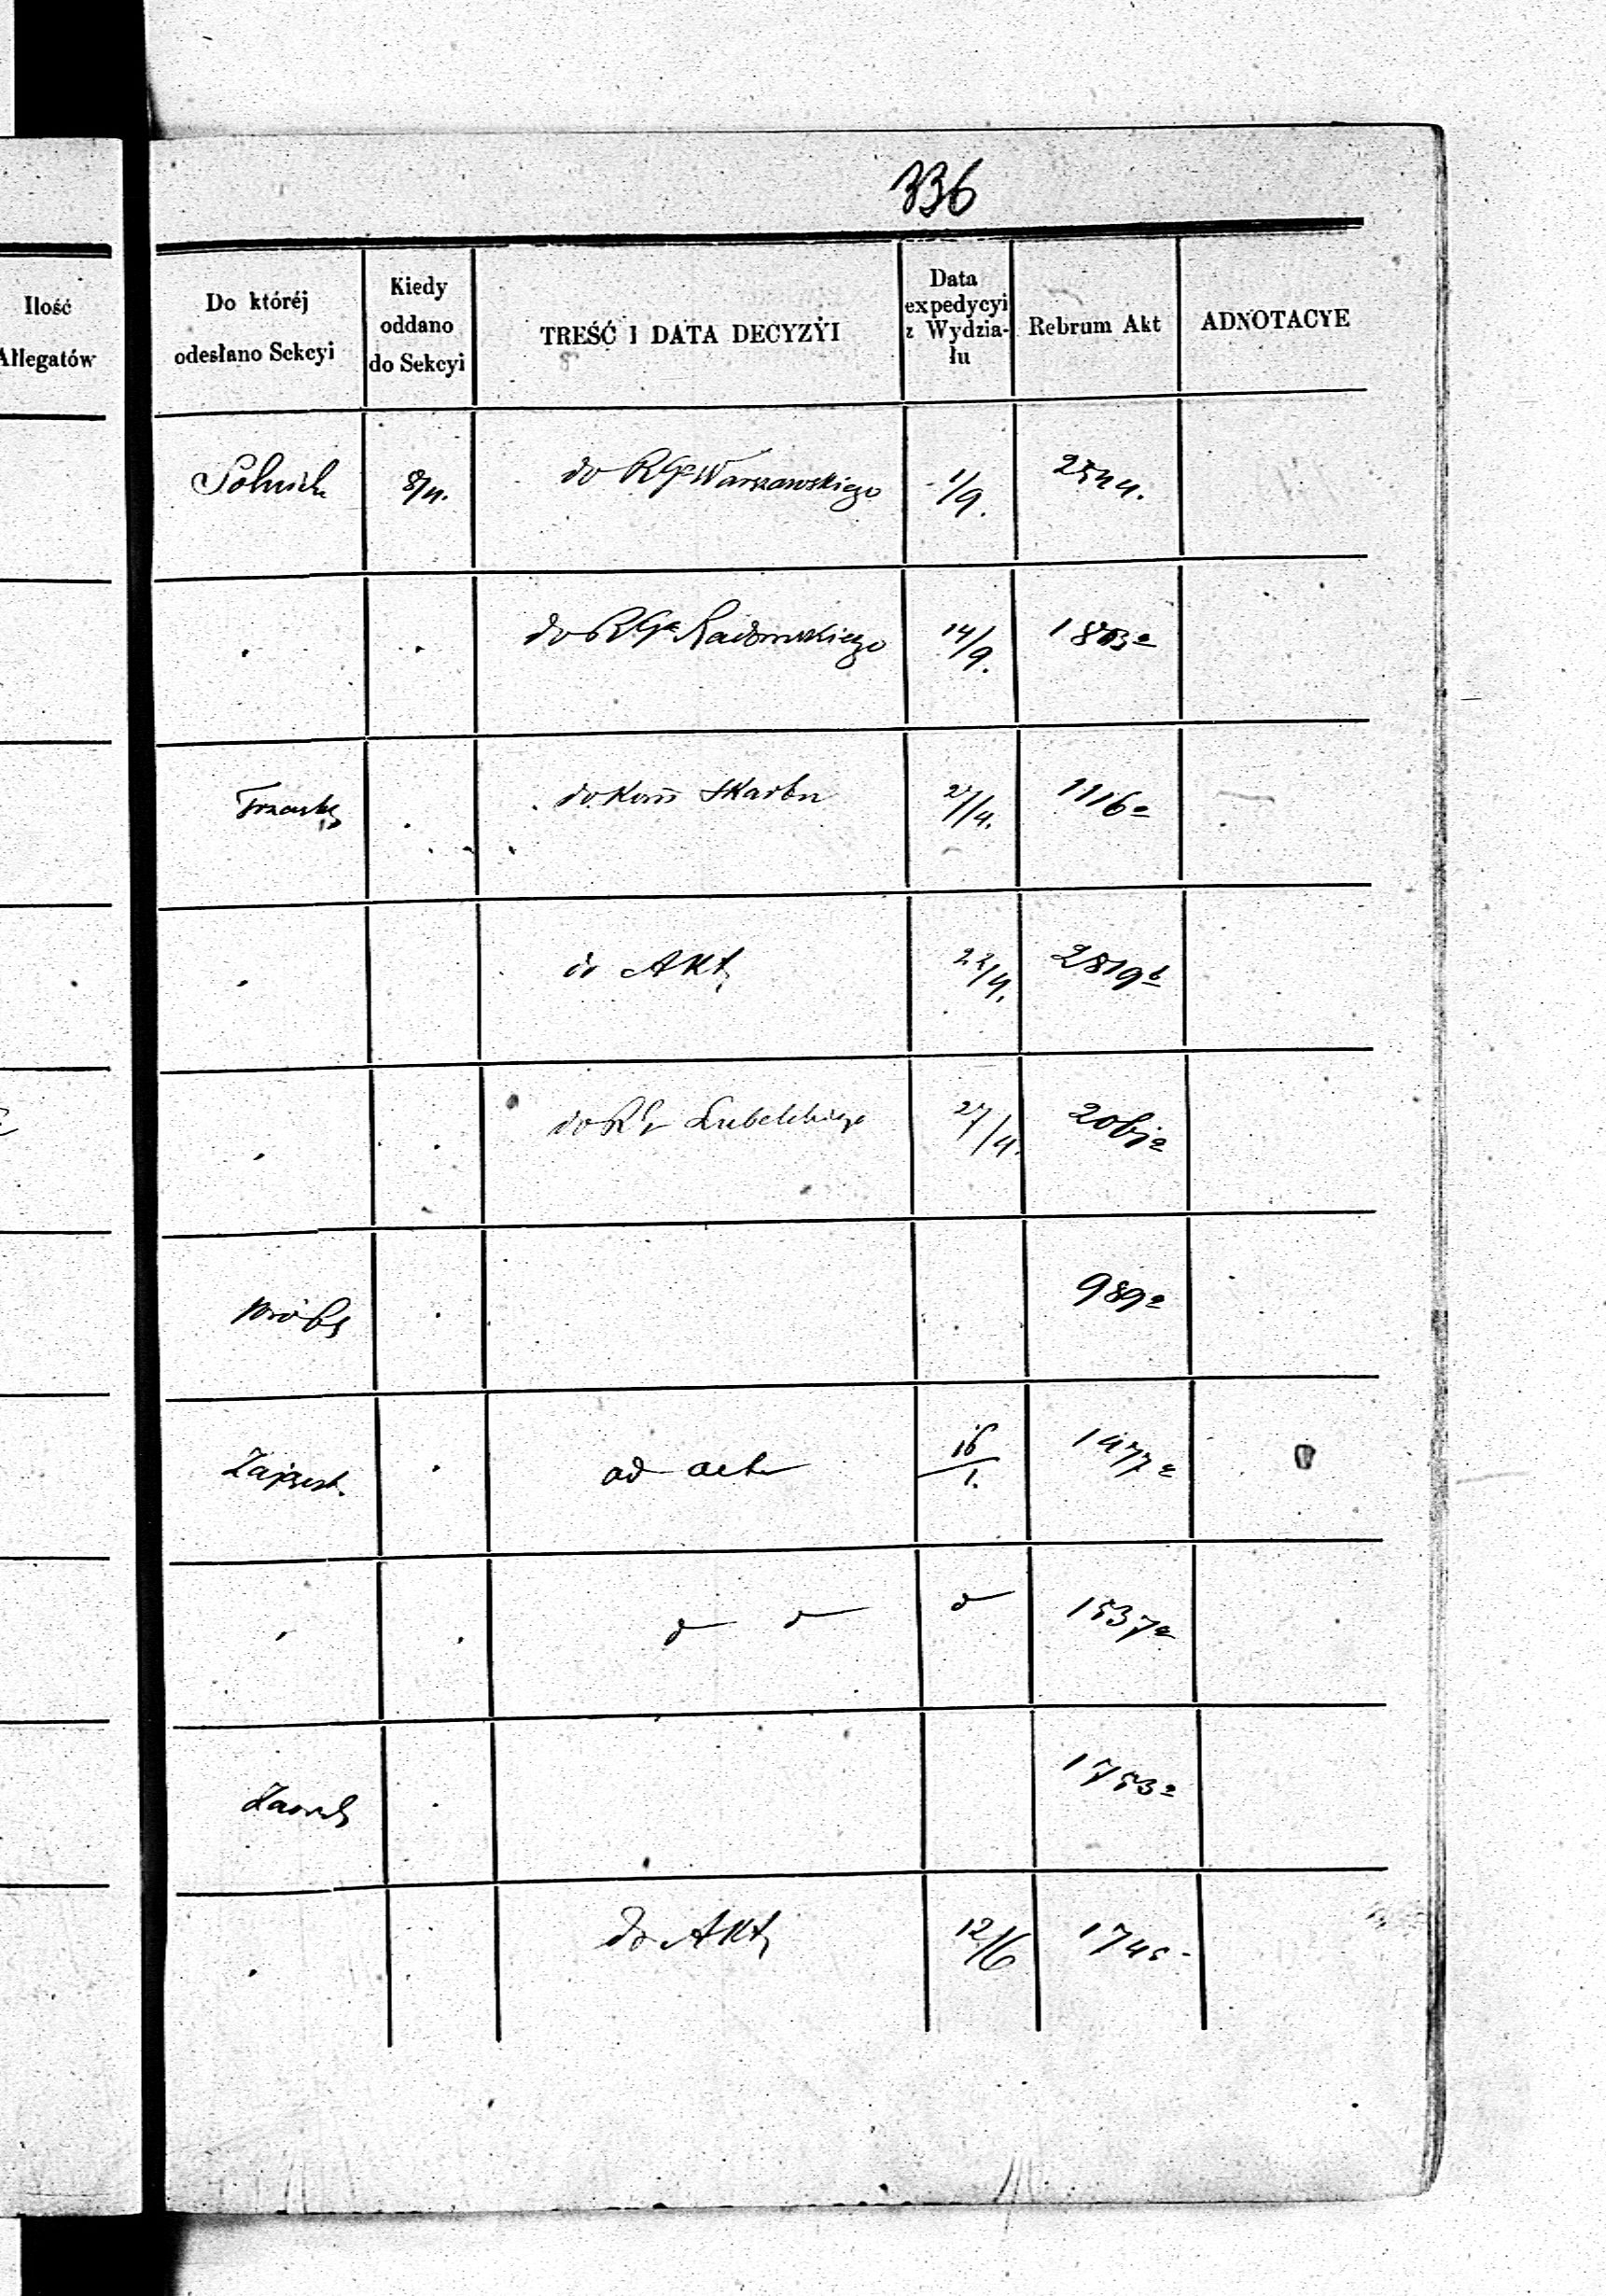 336
Ilość
Allegatów
Do któréj
odesłano Sekcyi
Kiedy
oddano
do Sekcyi
TREŚĆ I DATA DECYZYI
Data
expedycyi
z Wydzia-
łu
Rebrum Akt
ADNOTACYE
8/4. do RGo Warszawskiego 1/9. 2544.
do RGo Radomskiego 14/9.
do Kom Skarbu 27/4. 1116a
do Akt 22/4. 2819b
do RG Lubelskiego 27/4.
989a
ad acta 16/1. 1477a
d d d 1537a
1753a
Do Akt 12/6 1745